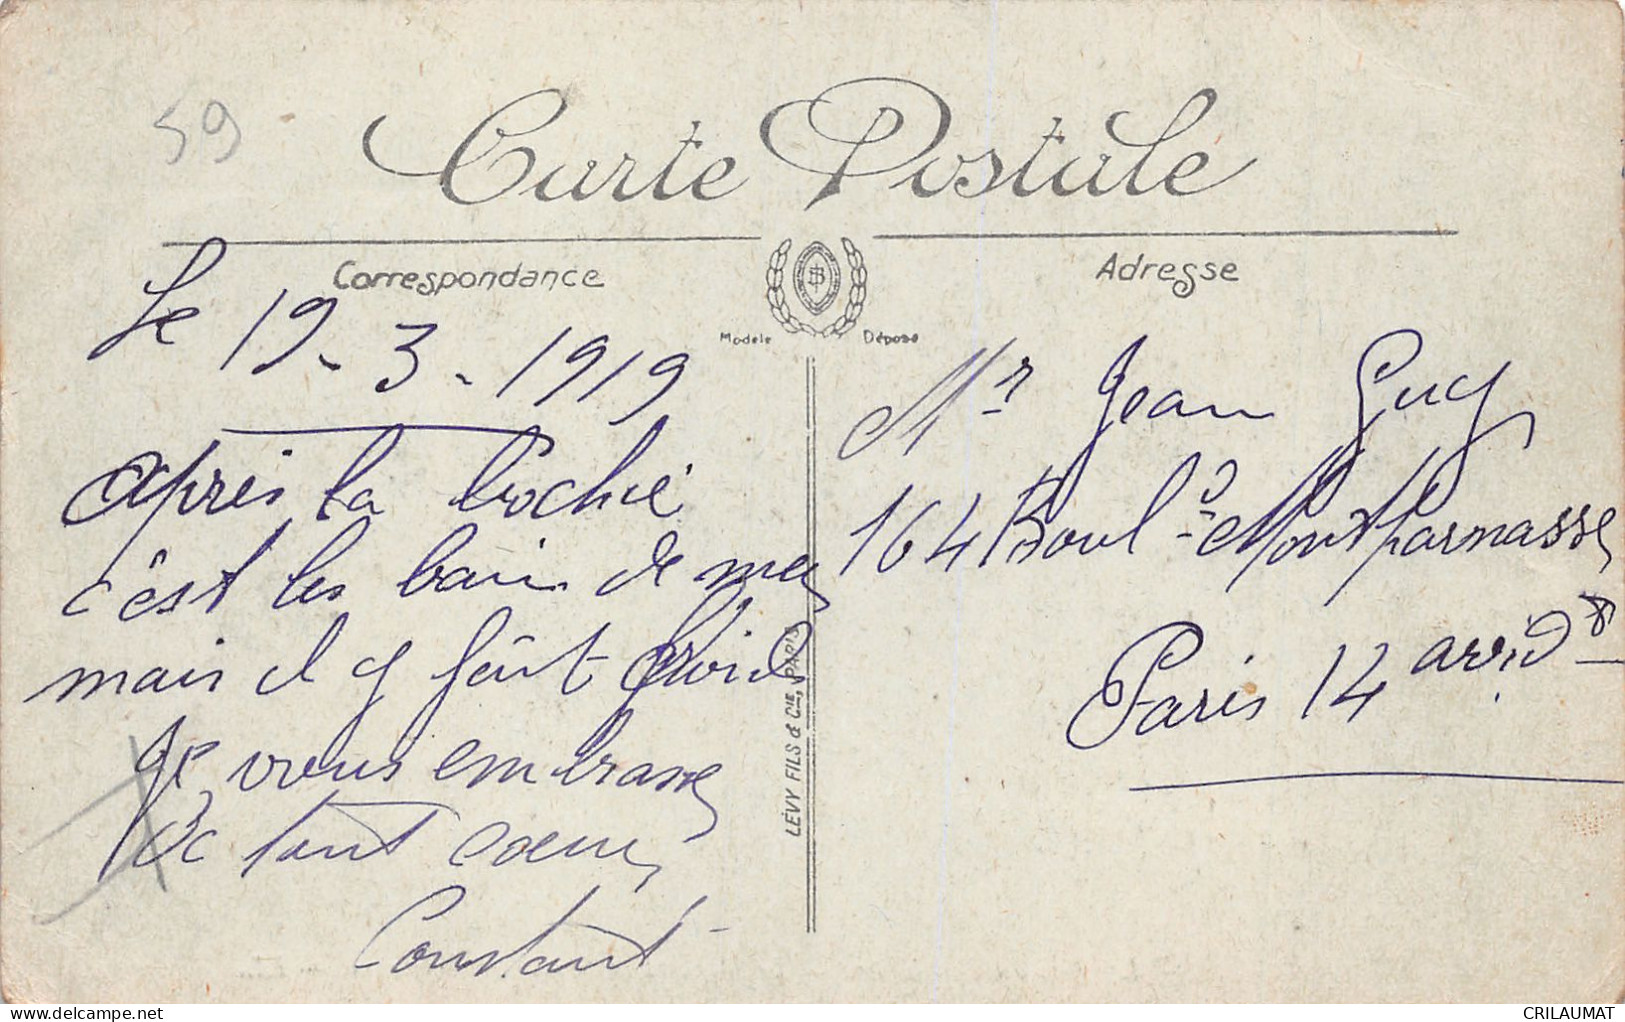 59
Carte Postale
Correspondance
Adresse
Modèle Déposé
Le 19-3-1919
après la
c'est les bain de mer
mais il y fait froid
Je vous embrasse
De tout coeur
Constant
LÉVY FILS & CIE, PARIS
Mr Jean Guy
164 Boul.d Montparnasse
Paris 14
www.delcampe.net
CRILAUMAT